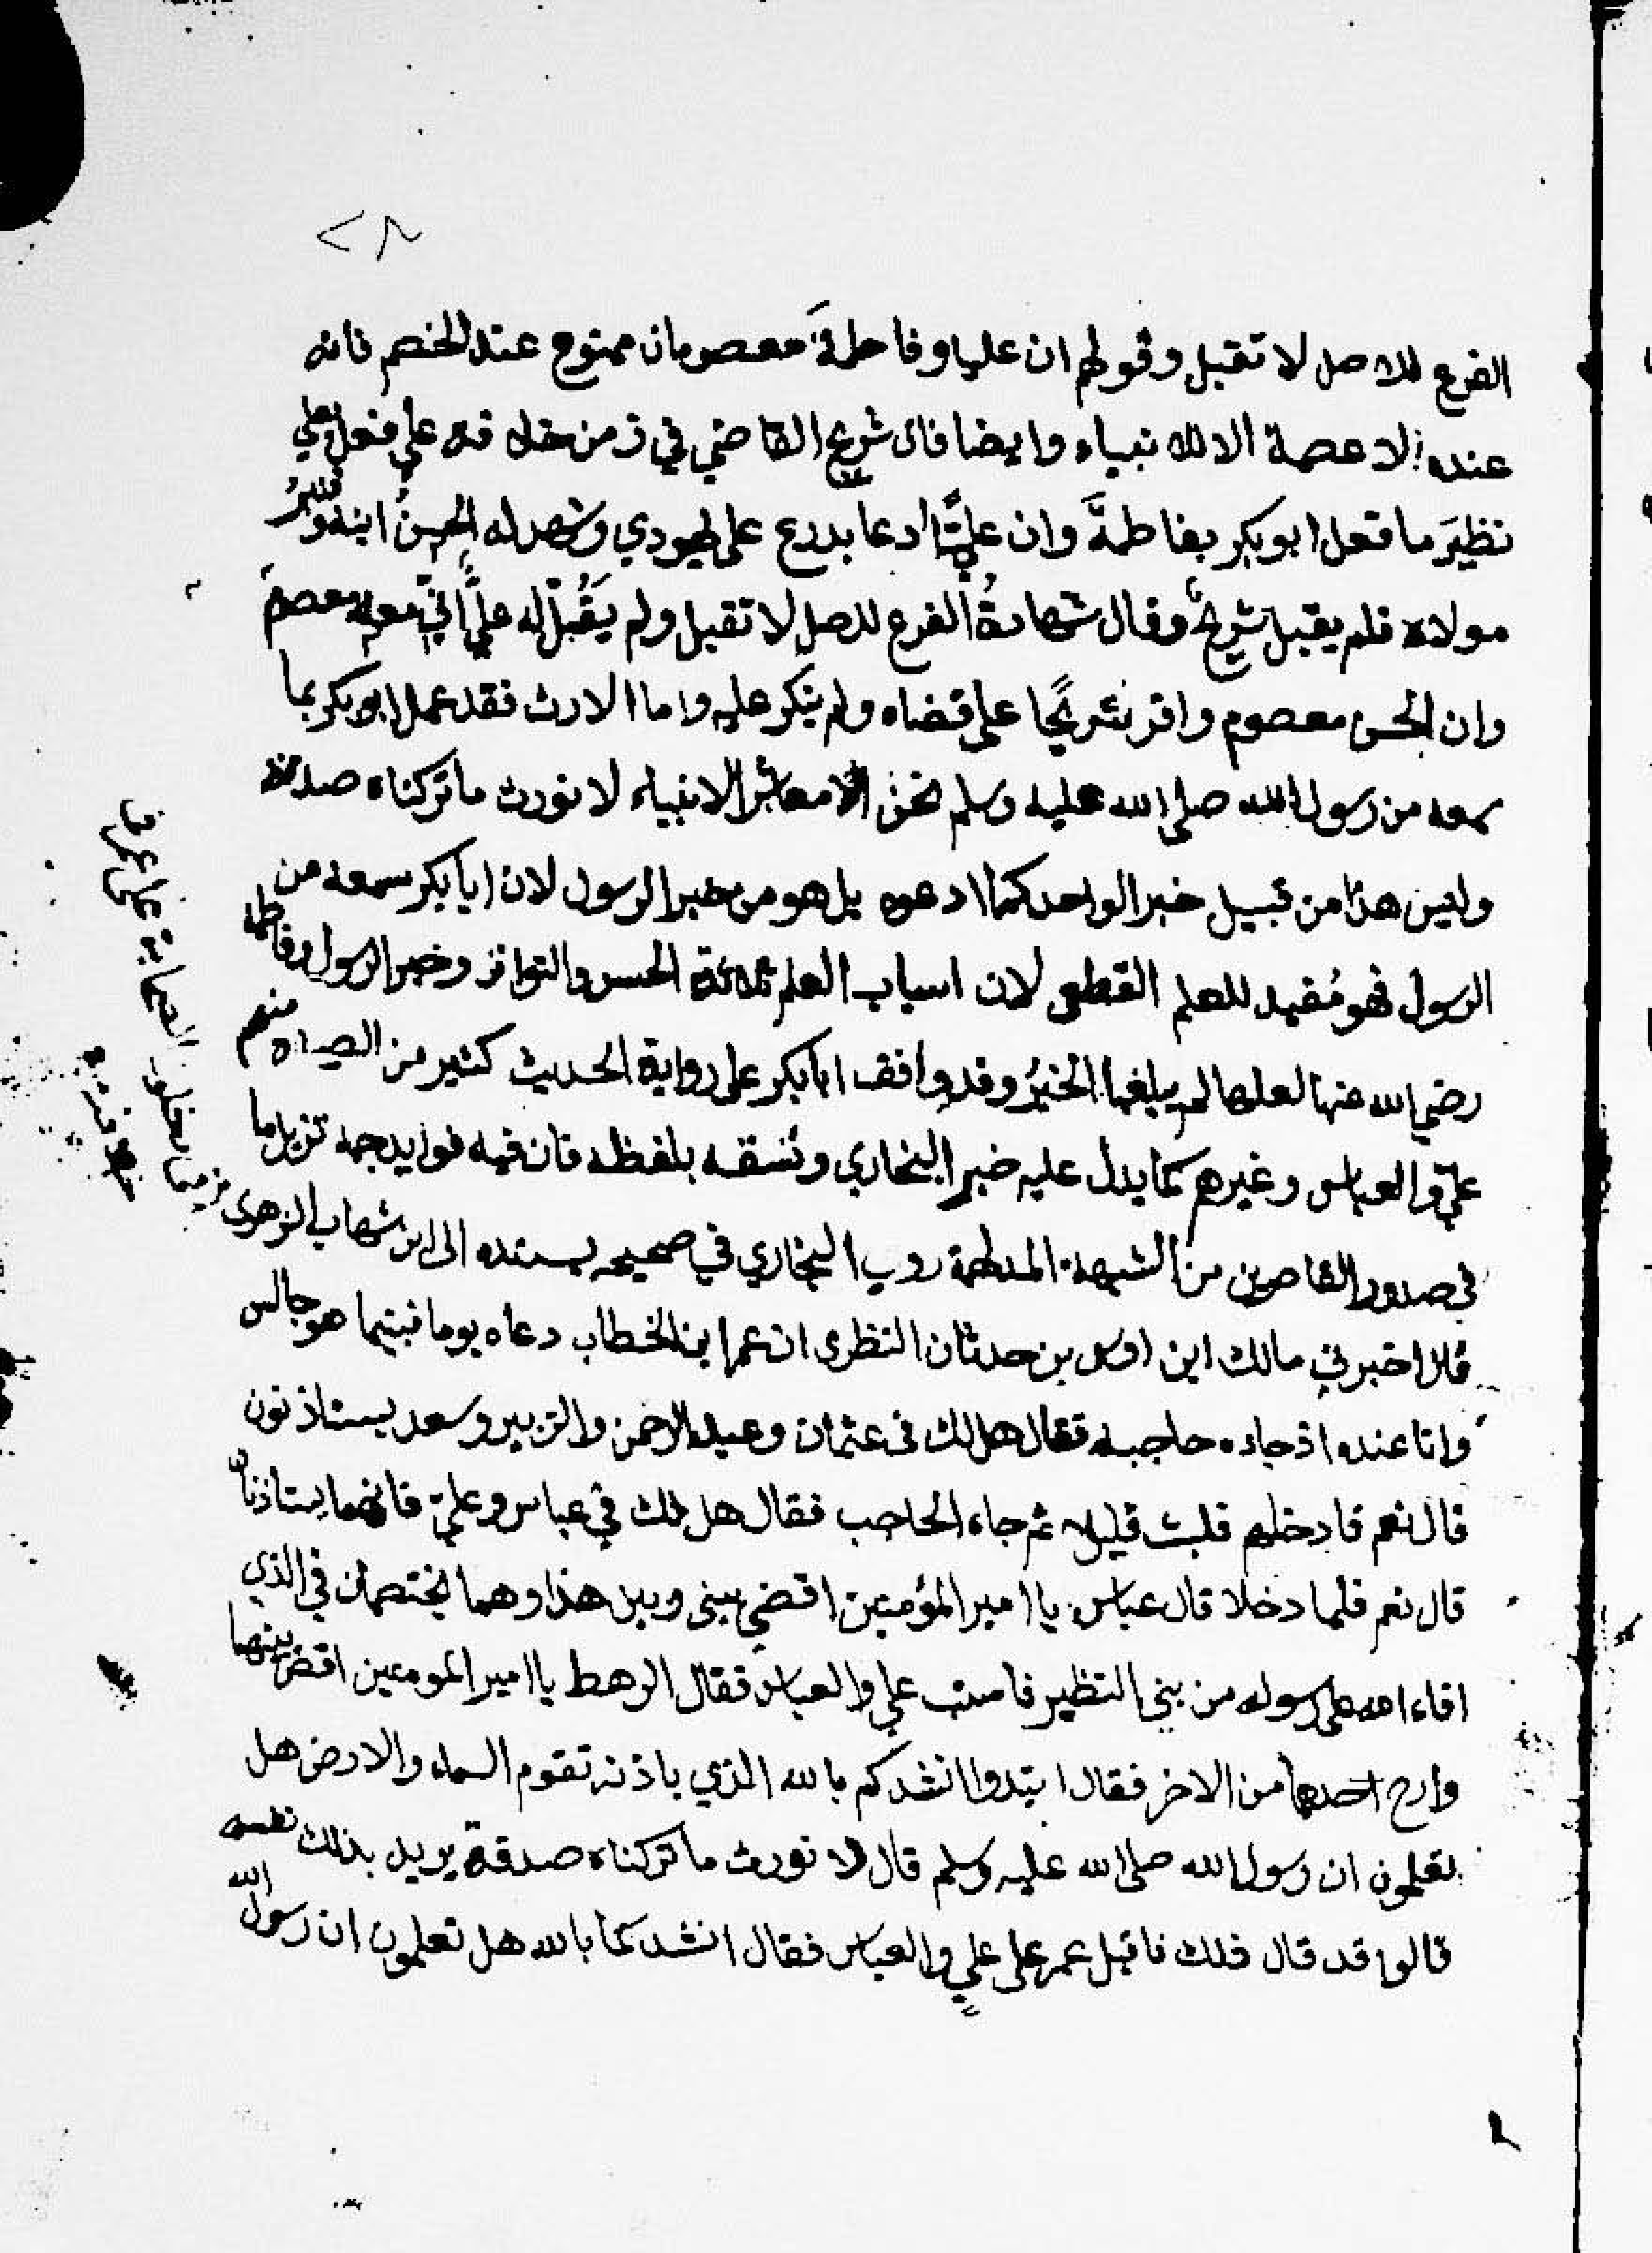 ٢٨
الفرع للاصل لا تقبل وقولهم ان عليا وفاطمةَ معصومان ممنوع عند الخصم فانه
عنده لا عصمة الا للانبياء وايضا فان شريح القاضي في زمن خلافة علي فعل بعلي
نظيرَ ما فعل ابو بكر بفاطمةَ وان عليًّا ادعا بدرع على يهودي وشهد له الحسنُ ابنه وقنبرُ
مولاه فلم يقبل شريح وقال شهادةُ الفرع للاصل لا تقبل ولم يَقُل له عليٌّ اني معصوم
وان الحسن معصوم واقر شريحًا على قضاه ولم ينكر عليه واما الارث فقد عمل ابو بكر بما
سمعه من رسول الله صلى الله عليه وسلم نحن معاشر الانبياء لا نورث ما تركناه صدقة
وليس هذا من قبيل خبر الواحد كما ادعوه بل هو من خبر الرسول لان ابا بكر سمعه من
الرسول فهو مُفيد للعلم القطعي لان اسباب العلم ثلاثة الحس والتواتر وخبر الرسول وفاطمة
رضي الله عنها لعلها لم يبلغها الخبرُ وقد وافق ابا بكر على رواية الحديث كثير من الصحابه منهم
عليّ والعباس وغيرهم كما يدل عليه خبر البخاري ونسقه بلفظه فان فيه فوايد جمه تزيل ما
في صدور القاصرين من الشبهة المدلهمة روى البخاري في صحيحه بسنده الى ابن شهاب الزهري
قال اخبرني مالك ابن اوس بن حدثان النظري ان عمر ابن الخطاب دعاه يوما فبينما هو جالس
وانا عنده اذ جاءه حاجبه فقال هل لك في عثمان وعبد الرحمن والزبير وسعد يستاذنون
قال نعم فادخلهم فلبث قليلا ثم جاء الحاجب فقال هل لك في عباس وعليّ فانهما يستاذنان
قال نعم فلما دخلا قال عباس يا امير المؤمنين اقضي بيني وبين هذا وهما يختصمان في الذي
افاء الله على رسوله من بني النظير فاستب علي والعباس فقال الرهط يا امير المومنين اقض بينهما
وارح احدهما من الاخر فقال ابتدوا انشدكم بالله الذي باذنه تقوم السماء والارض هل
تعلمون ان رسول الله صلى الله عليه وسلم قال لا نورث ما تركناه صدقة يريد بذلك نفسه
قالوا قد قال ذلك فاقبل عمر على علي والعباس فقال انشدكما بالله هل تعلمون ان رسول الله